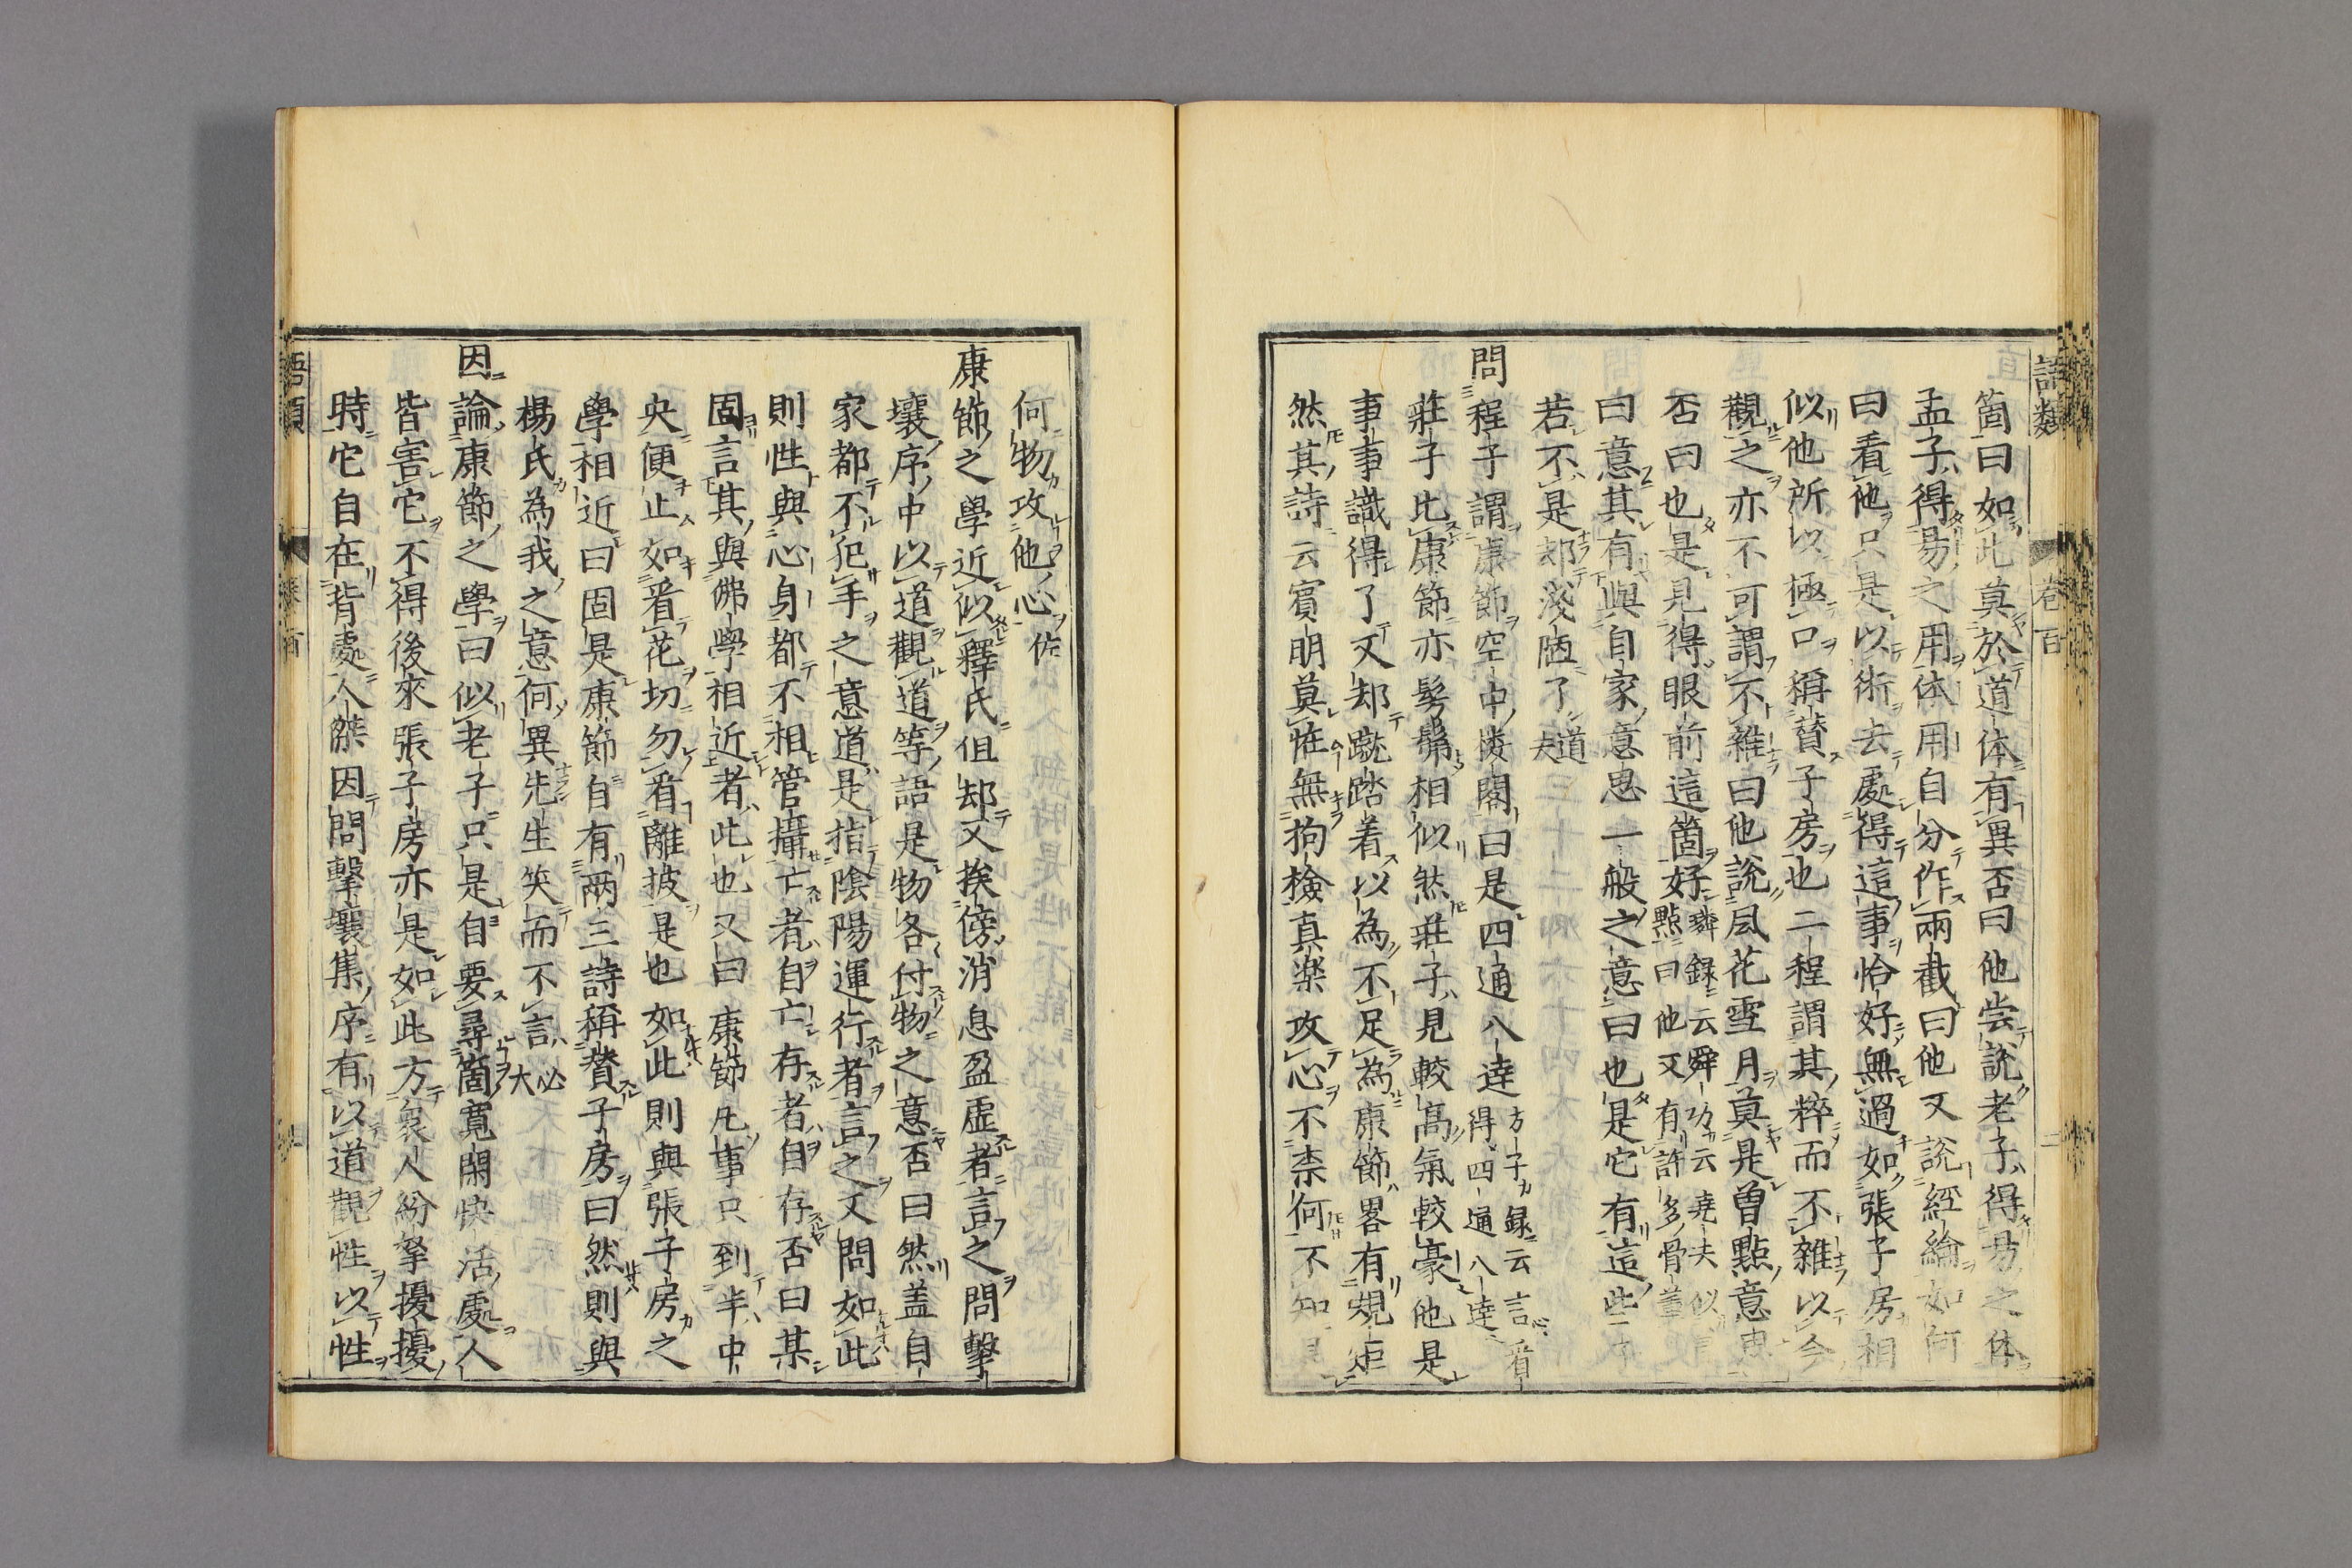 語類 卷百 二
箇曰如此莫於道体有異否曰他甞説老子得易之体
孟子得易之用体用自分作兩截曰他又説經綸如何
曰看他只是以術去處得這事恰好無過如張子房相
似他所以極口稱賛子房也二程謂其粹而不雜以今
觀之亦不可謂不雜曰他説風花雪月莫是曾點意思
否曰也是見得眼前這箇好璘録云舜功云堯夫似曾
點曰他又有許多骨董
曰意其有與自家意思一般之意曰也是它有這些
若不是却淺陋了道夫
問程子謂康節空中楼閣曰是四通八達方子録云言看
得四通八達
莊子比康節亦髣髴相似然莊子見較髙氣較豪他是
事事識得了又却蹴踏着以為不足為康節畧有規矩
然其詩云賓明莫恠無拘檢真楽攻心不柰何不知是
何物攻他心佐
康節之學近似釋氏但却又挨傍消息盈虚者言之問擊
壤序中以道觀道等語是物各付物之意否曰然盖自
家都不犯手之意道是指陰陽運行者言之又問如此
則性與心身都不相管攝亡者自亡存者自存否曰某
固言其與佛學相近者此也又曰康節凡事只到半中
央便止如㸔花切勿㸔離披是也如此則與張子房之
學相近曰固是康節自有兩三詩稱賛子房曰然則與
楊氏為我之意何異先生笑而不言必大
因論康節之學曰似老子只是自要尋箇寛閑快活處人
皆害它不得後來張子房亦是如此方衆人紛拏擾擾
時它自在背處人傑因問擊壤集序有以道觀性以性
語類 卷百